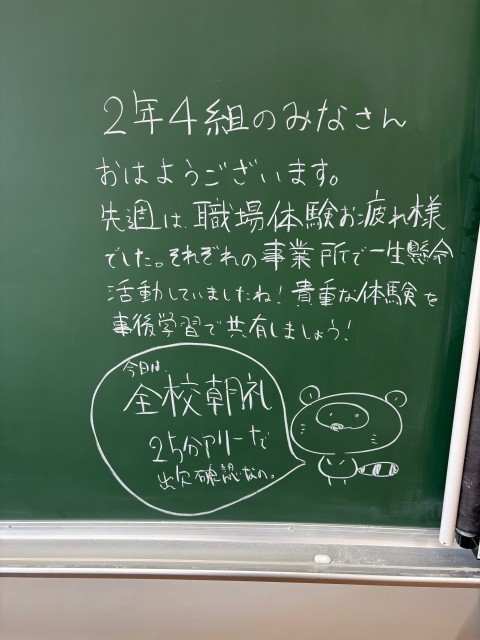 2年4組のみなさん
おはようございます。
先週は、職場体験お疲れ様
でした。それぞれの事業所で一生懸命
活動していましたね！貴重な体験を
事後学習で共有しましょう！
今日は、
全校朝礼
25分アリーナで
出欠確認なの。